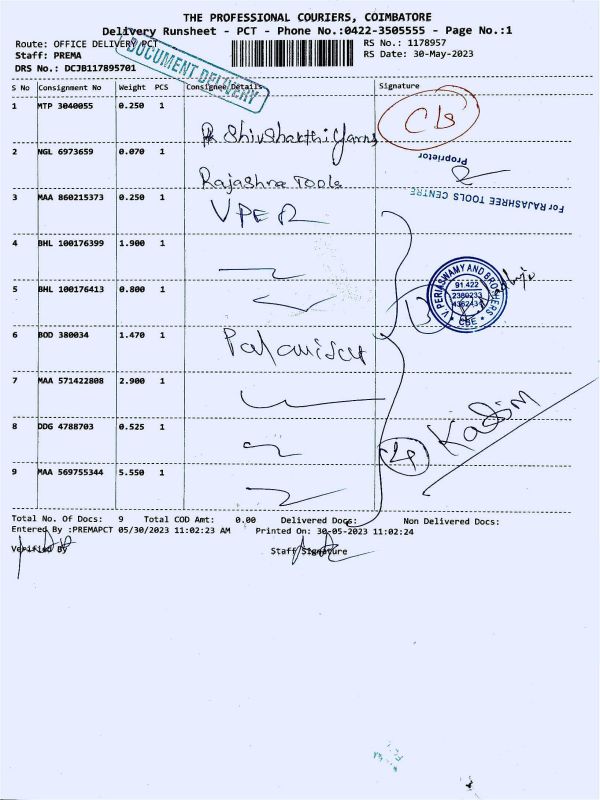 THE PROFESSIONAL COURIERS, COIMBATORE
Delivery Runsheet - PCT - Phone No.:0422-3505555 - Page No.:1
Route: OFFICE DELIVERY PCT
RS No.: 1178957
Staff: PREMA
RS Date: 30-May-2023
DRS No.: DCJB117895701
DOCUMENT DELIVERY
S No Consignment No Weight PCS Consignee Details Signature
1 MTP 3040055 0.250 1
Shivshakthi Yarns
2 NGL 6973659 0.070 1
Rajashree Tools
Proprietor
For RAJASHREE TOOLS CENTRE
3 MAA 860215373 0.250 1
4 BHL 100176399 1.900 1
5 BHL 100176413 0.800 1
V. PERIASWAMY AND BROTHERS
91.422
2380233
CBE
6 BOD 380034 1.470 1
7 MAA 571422808 2.900 1
8 DDG 4788703 0.525 1
Kasim
9 MAA 569755344 5.550 1
Total No. Of Docs: 9 Total COD Amt: 0.00 Delivered Docs: Non Delivered Docs:
Entered By :PREMAPCT 05/30/2023 11:02:23 AM Printed On: 30-05-2023 11:02:24
Verified By Staff Signature